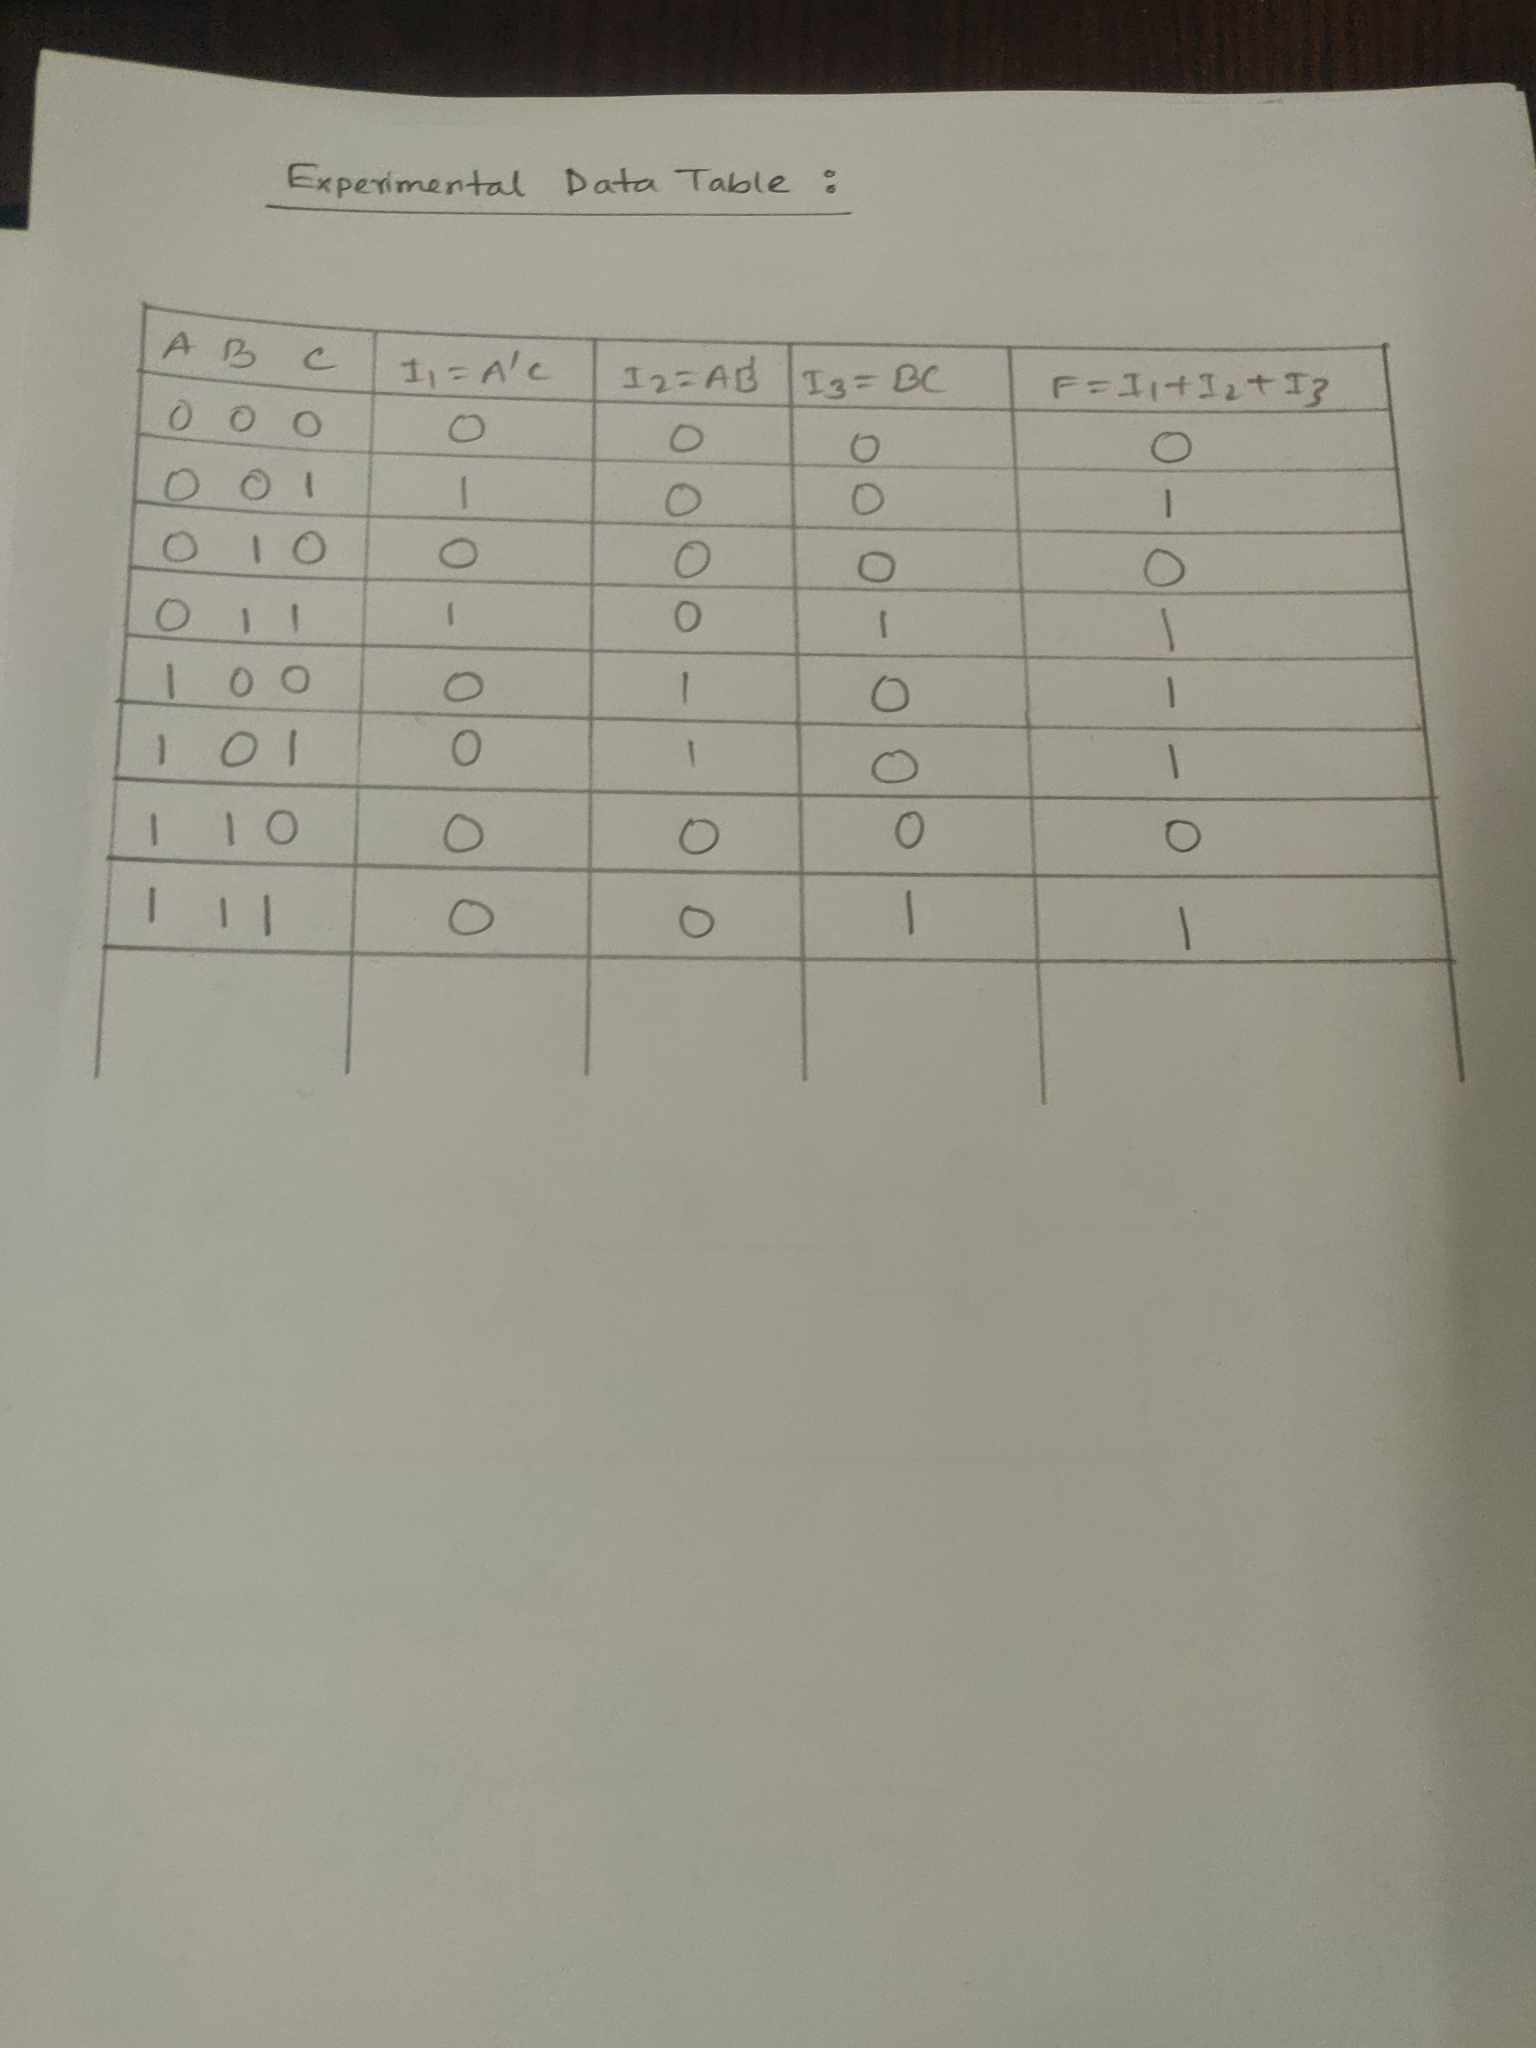 Experimental Data Table :
A B C I₁=A'C I₂=AB' I₃=BC F=I₁+I₂+I₃
0 0 0 0 0 0 0
0 0 1 1 0 0 1
0 1 0 0 0 0 0
0 1 1 1 0 1 1
1 0 0 0 1 0 1
1 0 1 0 1 0 1
1 1 0 0 0 0 0
1 1 1 0 0 1 1